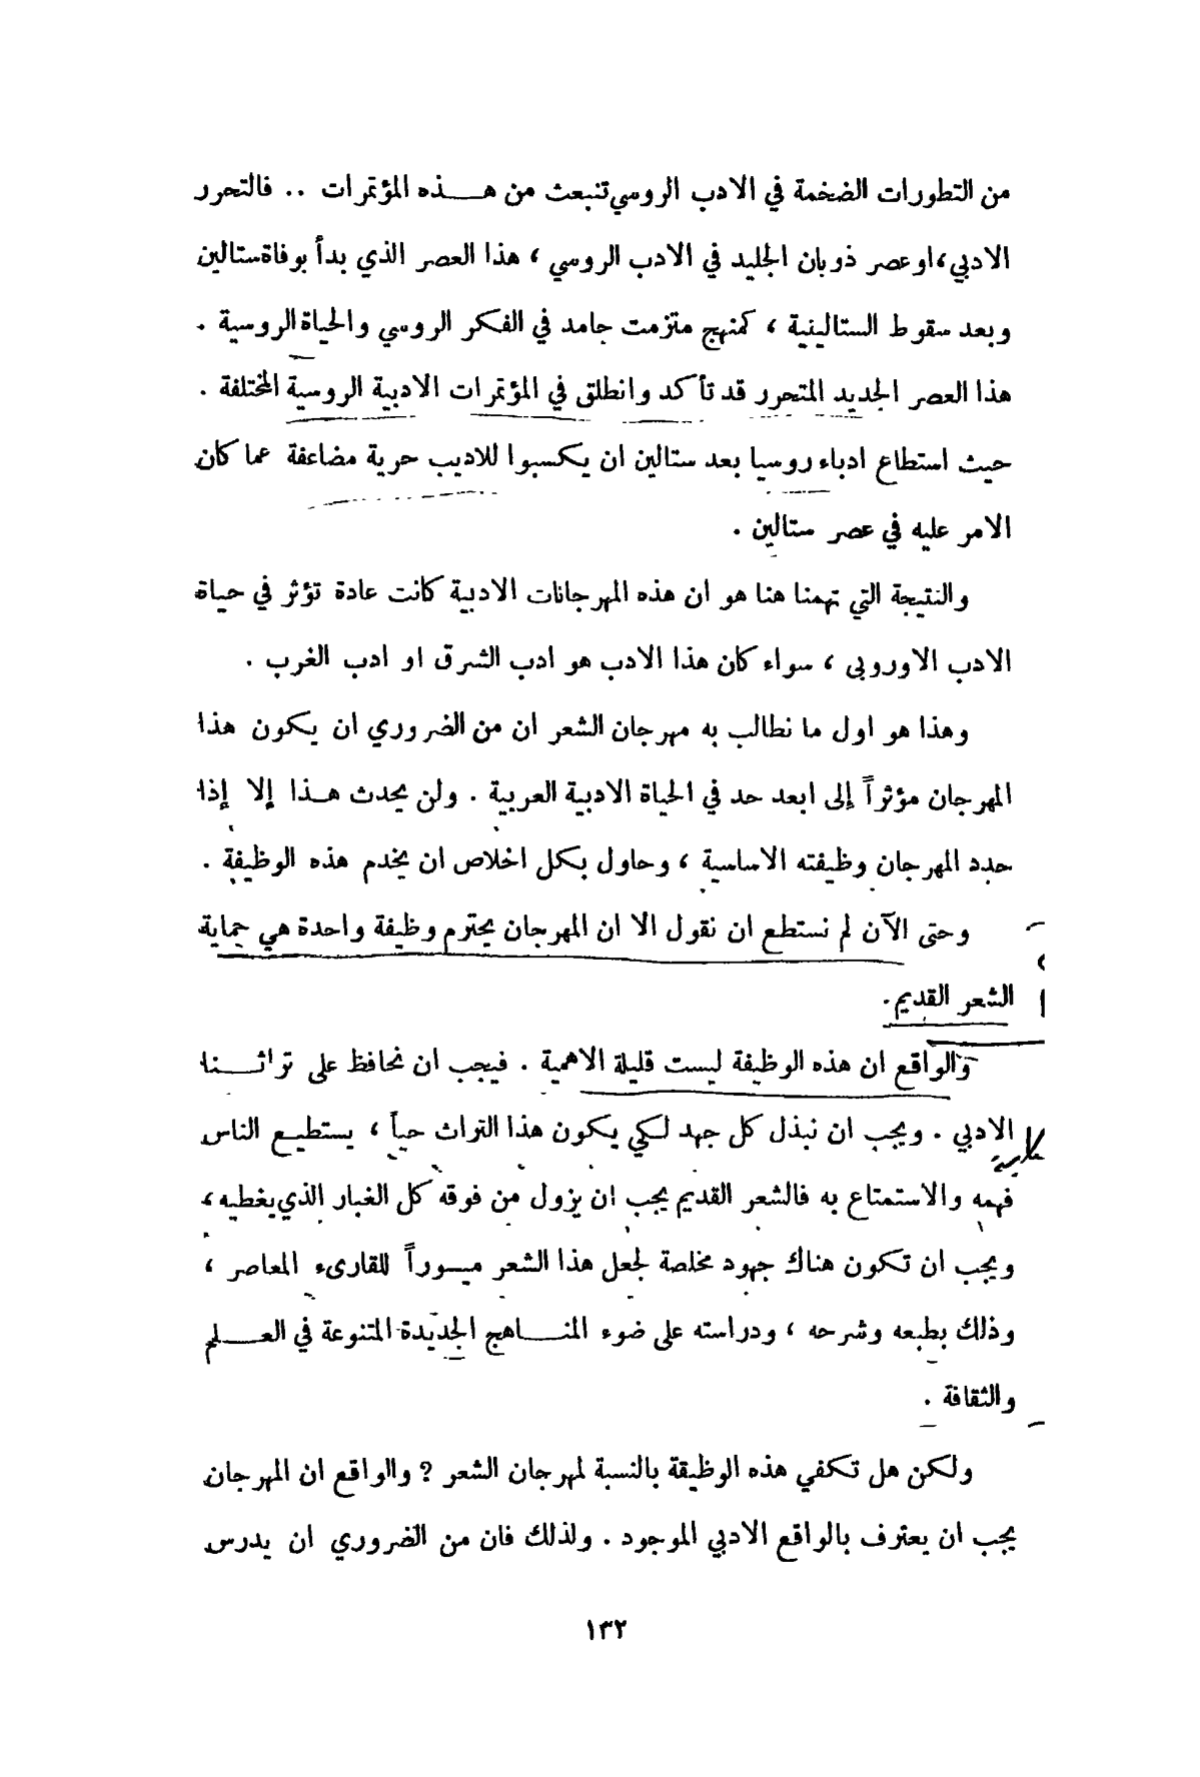 من التطورات الضخمة في الادب الروسي تنبعث من هـــذه المؤتمرات .. فالتحرر
الادبي، او عصر ذوبان الجليد في الادب الروسي ، هذا العصر الذي بدأ بوفاة ستالين
وبعد سقوط الستالينية ، كمنهج متزمت جامد في الفكر الروسي والحياة الروسية .
هذا العصر الجديد المتحرر قد تأكد وانطلق في المؤتمرات الادبية الروسية المختلفة .
حيث استطاع ادباء روسيا بعد ستالين ان يكسبوا للاديب حرية مضاعفة عما كان
الامر عليه في عصر ستالين .
والنتيجة التي تهمنا هنا هو ان هذه المهرجانات الادبية كانت عادة تؤثر في حياة
الادب الاوروبي ، سواء كان هذا الادب هو ادب الشرق او ادب الغرب .
وهذا هو اول ما نطالب به مهرجان الشعر ان من الضروري ان يكون هذا
المهرجان مؤثراً إلى ابعد حد في الحياة الادبية العربية . ولن يحدث هـذا إلا إذا
حدد المهرجان وظيفته الاساسية ، وحاول بكل اخلاص ان يخدم هذه الوظيفة .
وحتى الآن لم نستطع ان نقول الا ان المهرجان يحترم وظيفة واحدة هي حماية
الشعر القديم.
والواقع ان هذه الوظيفة ليست قليلة الاهمية . فيجب ان نحافظ على تراثـــنا
الادبي . ويجب ان نبذل كل جهد لكي يكون هذا التراث حياً ، يستطيـع الناس
فهمه والاستمتاع به فالشعر القديم يجب ان يزول من فوقه كل الغبار الذي يغطيه ،
ويجب ان تكون هناك جهود مخلصة لجعل هذا الشعر ميسوراً للقارىء المعاصر ،
وذلك بطبعه وشرحه ، ودراسته على ضوء المنـــاهج الجديدة المتنوعة في العـــلم
والثقافة .
ولكن هل تكفي هذه الوظيقة بالنسبة لمهرجان الشعر ؟ واالواقع ان المهرجان
يجب ان يعترف بالواقع الادبي الموجود . ولذلك فان من الضروري ان يدرس
١٣٢